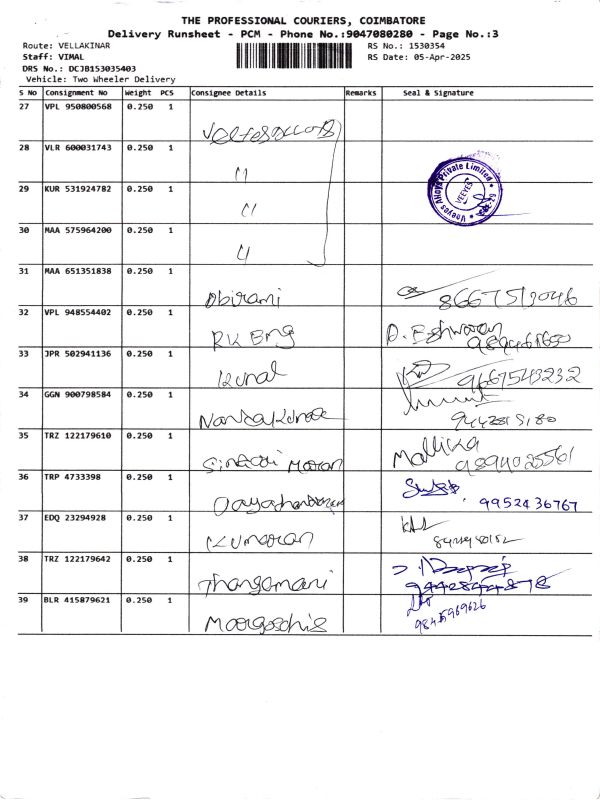 THE PROFESSIONAL COURIERS, COIMBATORE
Delivery Runsheet - PCM - Phone No.:9047080280 - Page No.:3
Route: VELLAKINAR
RS No.: 1530354
Staff: VIMAL
RS Date: 05-Apr-2025
DRS No.: DCJB153035403
Vehicle: Two Wheeler Delivery
S No Consignment No Weight PCS Consignee Details Remarks Seal & Signature
27 VPL 950800568 0.250 1
28 VLR 600031743 0.250 1 11
Veeyes AHOYS Private Limited
VEEYES
29 KUR 531924782 0.250 1 11
30 MAA 575964200 0.250 1 11
31 MAA 651351838 0.250 1 Abirami 8667513046
32 VPL 948554402 0.250 1 RK Eng D. Eshwaran
33 JPR 502941136 0.250 1 Kunal 9667543232
34 GGN 900798584 0.250 1
35 TRZ 122179610 0.250 1 Maran Mallika 9894025561
36 TRP 4733398 0.250 1 9952436767
37 EDQ 23294928 0.250 1 Kumaran
38 TRZ 122179642 0.250 1 Thangamani 9442844878
39 BLR 415879621 0.250 1 9845969626